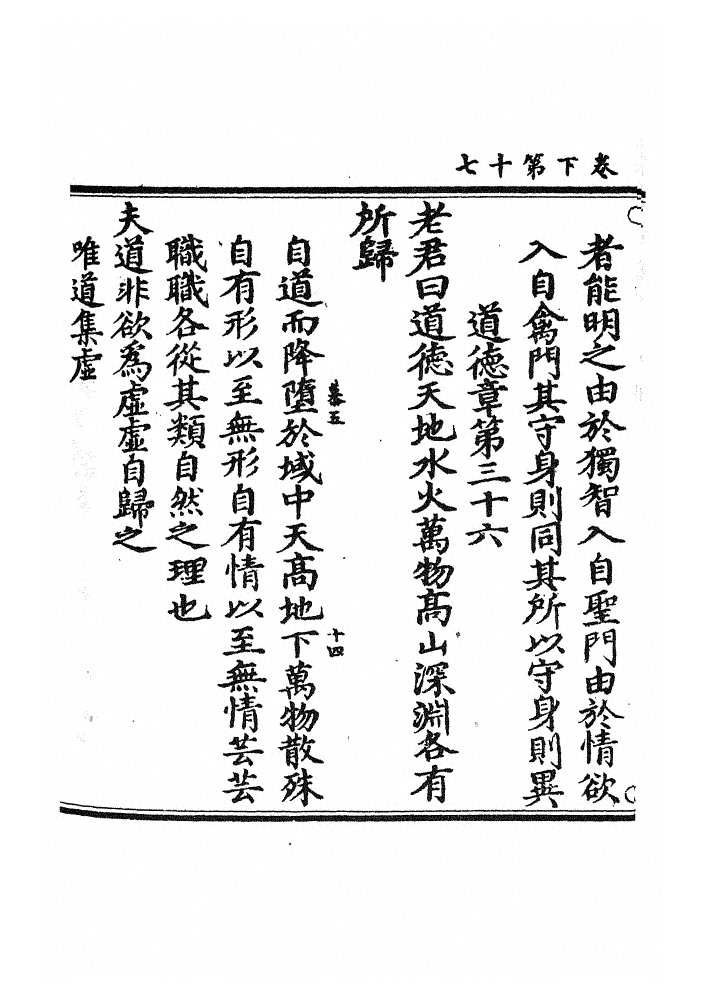 卷下第十七
者能明之由於獨智入自聖門由於情欲
入自禽門其守身則同其所以守身則異
道德章第三十六
老君曰道德天地水火萬物高山深淵各有
所歸
自道而降墮於域中天高地下萬物散殊
慕五
十四
自有形以至無形自有情以至無情芸芸
職職各從其類自然之理也
夫道非欲為虛虛自歸之
唯道集虛